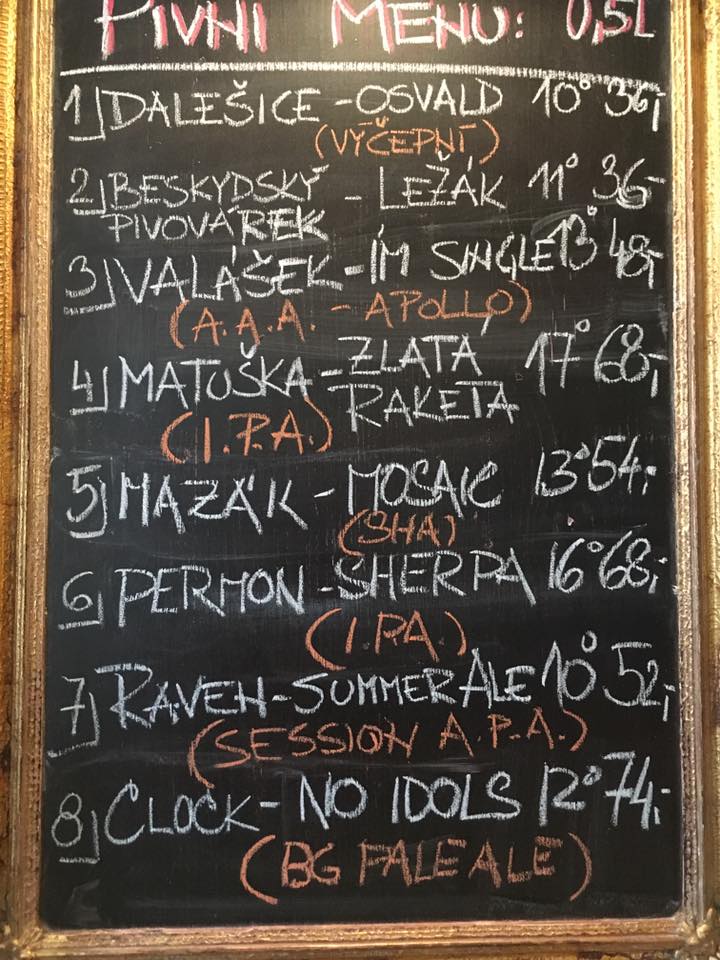 PIVNÍ MENU: 0,5L
1) DALEŠICE - OSVALD 10° 36,-
(VÝČEPNÍ)
2) BESKYDSKÝ - LEŽÁK 11° 36,-
PIVOVÁREK
3) VALÁŠEK - IM SINGLE 13° 48,-
(A.A.A. - APOLLO)
4) MATUŠKA - ZLATÁ 17° 68,-
RAKETA
(I.P.A.)
5) MAZÁK - MOSAIC 13° 54,-
(SHA)
6) PERMON - SHERPA 16° 68,-
(I.PA)
7) RAVEN - SUMMER ALE 10° 52,-
(SESSION A.P.A.)
8) CLOCK - NO IDOLS 12° 74,-
(BG PALE ALE)